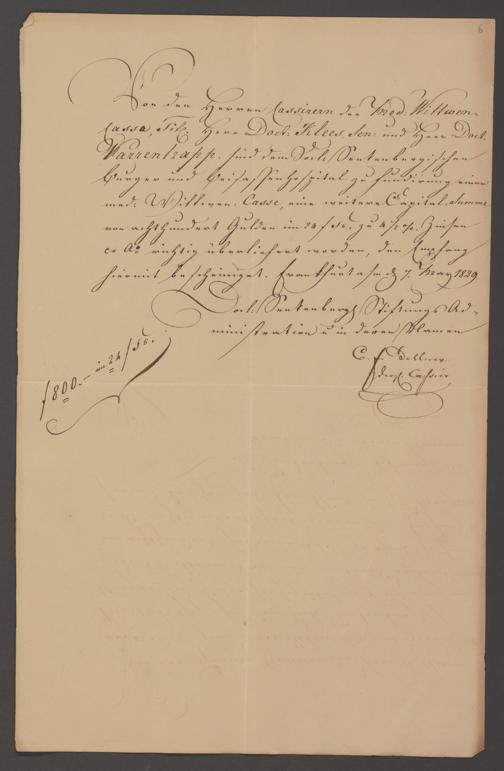 6
Von den Herren Cassirern der Med. Wittwen-
Cassa, Tit. Herr Doct: Klees sen: und Herr Doct.
Varrentrapp. sind dem Doct. Senkenbergischen
Bürger und Beisassenhospital zu Fundirung einer
med: Wittwen-Casse, eine weitere Capital-Summe
von achthundert Gulden im 24 f Fß. zu 4½ pC. Zinsen
richtig überliefert worden, den Empfang
hiermit bescheiniget. Frankfurt a/m d. 7. May 1829
Doct: Senkenberg. Stiftungs Ad-
ministration u in deren Namen
C. F.
derz. Cassier
f 800.– im 24 f Fß.